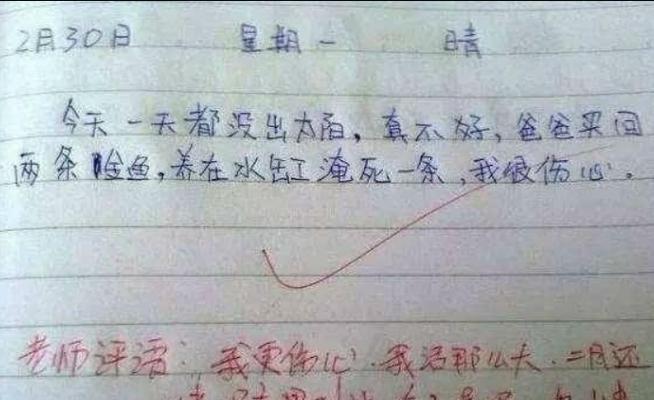 2月30日 星期一 晴
今天一天都没出太阳,真不好,爸爸买回
两条金鱼,养在水缸淹死一条,我很伤心。
老师评语:我更伤心.我活那么大.二月还